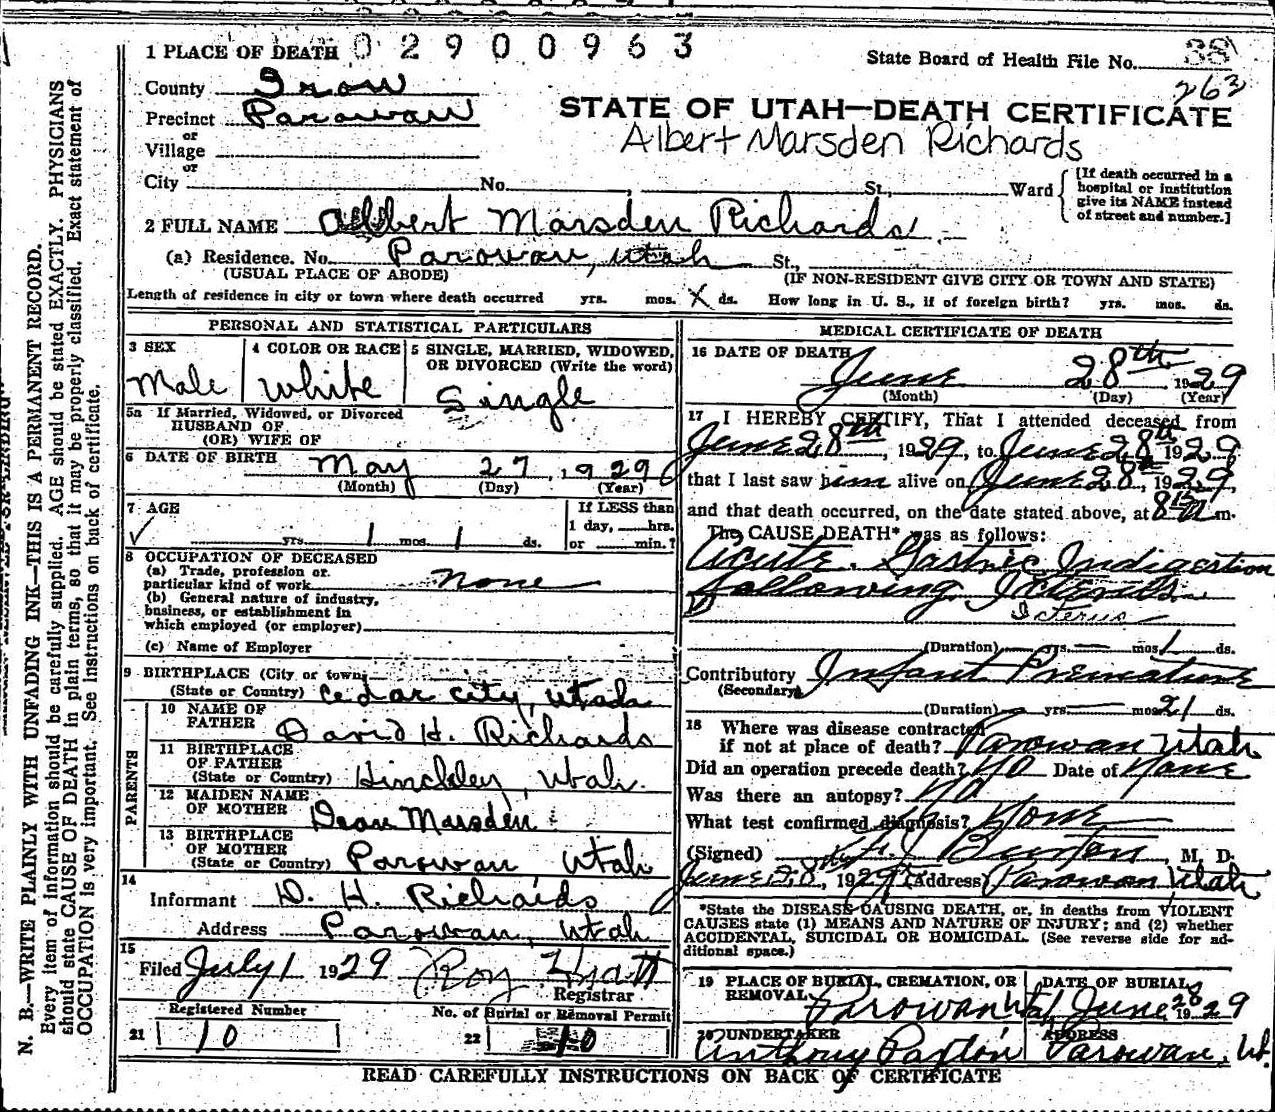 1 PLACE OF DEATH 0 2 9 0 0 9 6 3
State Board of Health File No. 38
263
County Iron
Precinct Parowan
or
Village
or
City No. , St., Ward
STATE OF UTAH—DEATH CERTIFICATE
Albert Marsden Richards
[If death occurred in a
hospital or institution
give its NAME instead
of street and number.]
2 FULL NAME Albert Marsden Richards
(a) Residence. No. Parowan, Utah St.,
(USUAL PLACE OF ABODE) (IF NON-RESIDENT GIVE CITY OR TOWN AND STATE)
Length of residence in city or town where death occurred yrs. mos. X ds. How long in U. S., if of foreign birth? yrs. mos. ds.
PERSONAL AND STATISTICAL PARTICULARS
3 SEX 4 COLOR OR RACE 5 SINGLE, MARRIED, WIDOWED,
OR DIVORCED (Write the word)
Male White Single
5a If Married, Widowed, or Divorced
HUSBAND OF
(OR) WIFE OF
6 DATE OF BIRTH May 27, 1929
(Month) (Day) (Year)
7 AGE If LESS than
1 day, hrs.
yrs. 1 mos. 1 ds. or min.?
8 OCCUPATION OF DECEASED
(a) Trade, profession or
particular kind of work none
(b) General nature of industry,
business, or establishment in
which employed (or employer)
(c) Name of Employer
9 BIRTHPLACE (City or town)
(State or Country) Cedar City, Utah
PARENTS
10 NAME OF
FATHER David H. Richards
11 BIRTHPLACE
OF FATHER
(State or Country) Hinckley, Utah.
12 MAIDEN NAME
OF MOTHER Dean Marsden
13 BIRTHPLACE
OF MOTHER
(State or Country) Parowan, Utah
14
Informant D. H. Richards
Address Parowan, Utah
15
Filed July 1 1929 Roy
Registrar
Registered Number No. of Burial or Removal Permit
21 10 22 10
MEDICAL CERTIFICATE OF DEATH
16 DATE OF DEATH
June 28th 1929
(Month) (Day) (Year)
17 I HEREBY CERTIFY, That I attended deceased from
June 28th, 1929, to June 28th 1929,
that I last saw him alive on June 28th, 1929,
and that death occurred, on the date stated above, at 8 15 a m.
The CAUSE DEATH* was as follows:
Acute Gastric Indigestion
following
Icterus
(Duration) yrs. mos. 1 ds.
Contributory Infant Premature
(Secondary)
(Duration) yrs. mos. 21 ds.
18 Where was disease contracted
if not at place of death? Parowan Utah
Did an operation precede death? No Date of None
Was there an autopsy? No
What test confirmed diagnosis? None
(Signed) Burton, M. D.
June 28th, 1929 (Address) Parowan Utah
*State the DISEASE CAUSING DEATH, or, in deaths from VIOLENT
CAUSES state (1) MEANS AND NATURE OF INJURY; and (2) whether
ACCIDENTAL, SUICIDAL OR HOMICIDAL. (See reverse side for ad-
ditional space.)
19 PLACE OF BURIAL, CREMATION, OR
REMOVAL Parowan
DATE OF BURIAL
June 28 1929
20 UNDERTAKER ADDRESS
Anthony Paxton Parowan, Ut.
READ CAREFULLY INSTRUCTIONS ON BACK OF CERTIFICATE
N. B.—WRITE PLAINLY WITH UNFADING INK—THIS IS A PERMANENT RECORD.
Every item of information should be carefully supplied. AGE should be stated EXACTLY. PHYSICIANS
should state CAUSE OF DEATH in plain terms, so that it may be properly classified. Exact statement of
OCCUPATION is very important. See instructions on back of certificate.